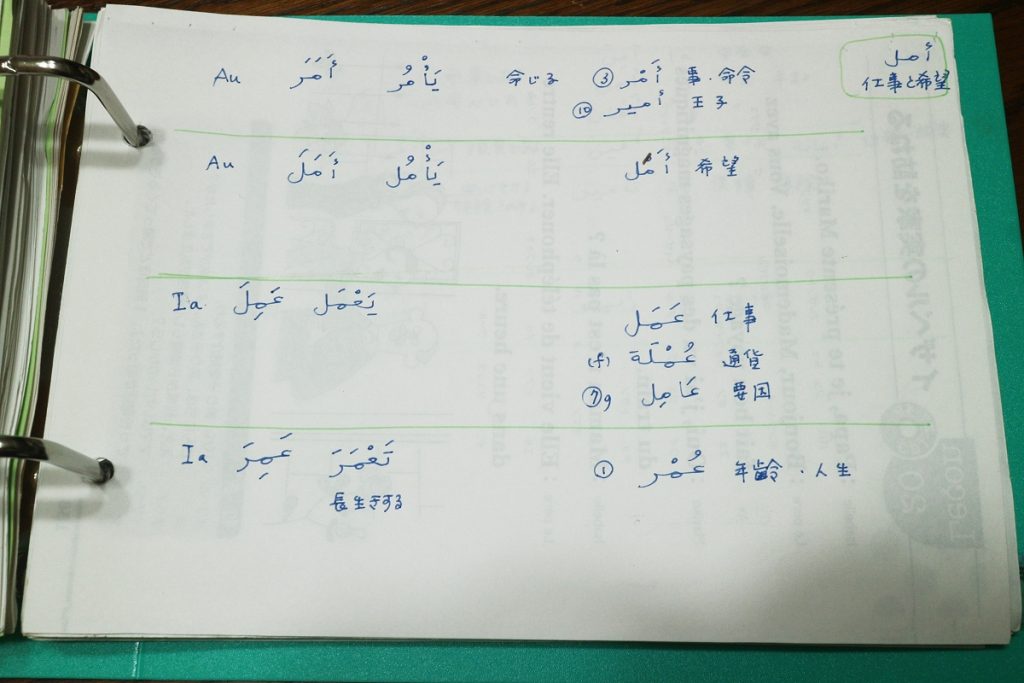 أمل
仕事と希望
Au أَمَرَ يَأْمُرُ 命じる ③ أَمْر 事・命令
⑩ أمير 王子
Au أَمَلَ يَأْمُل أَمَل 希望
Ia عَمِلَ يَعْمَل عَمَل 仕事
(f) عُمْلَة 通貨
⑦g عَامِل 要因
Ia عَمِرَ تَعْمَرَ ① عُمْر 年齢・人生
長生きする